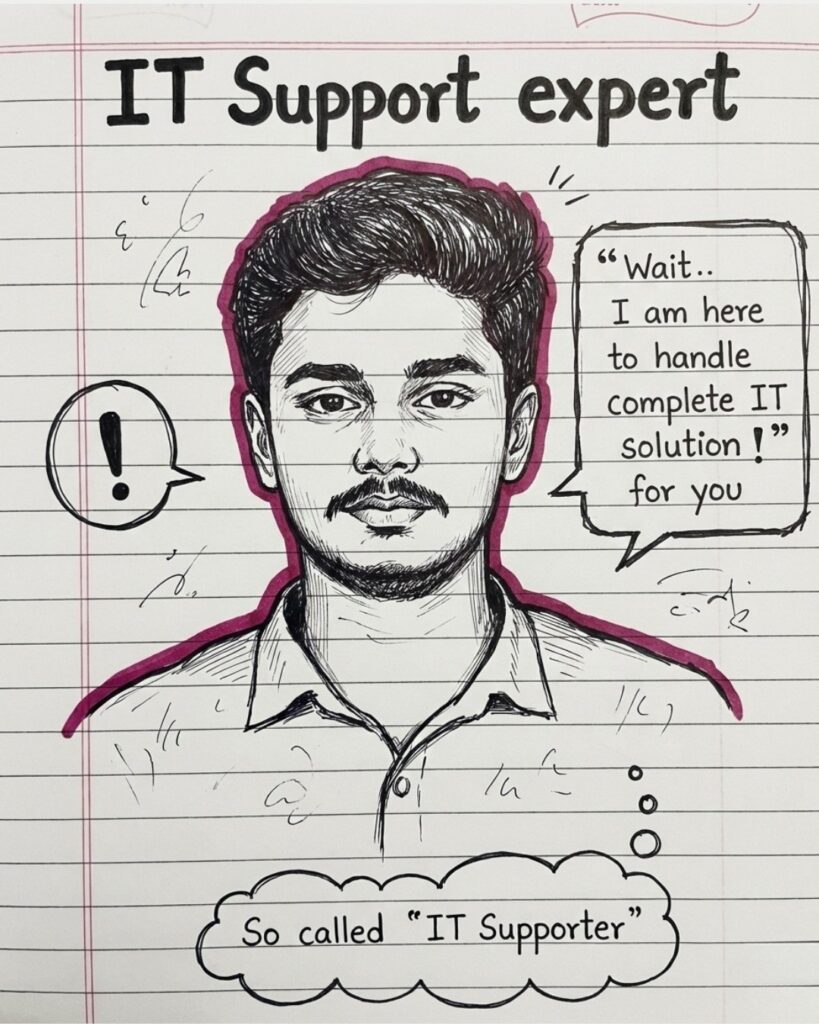 IT Support expert
“Wait..
I am here
to handle
complete IT
solution!”
for you
!
So called “IT Supporter”